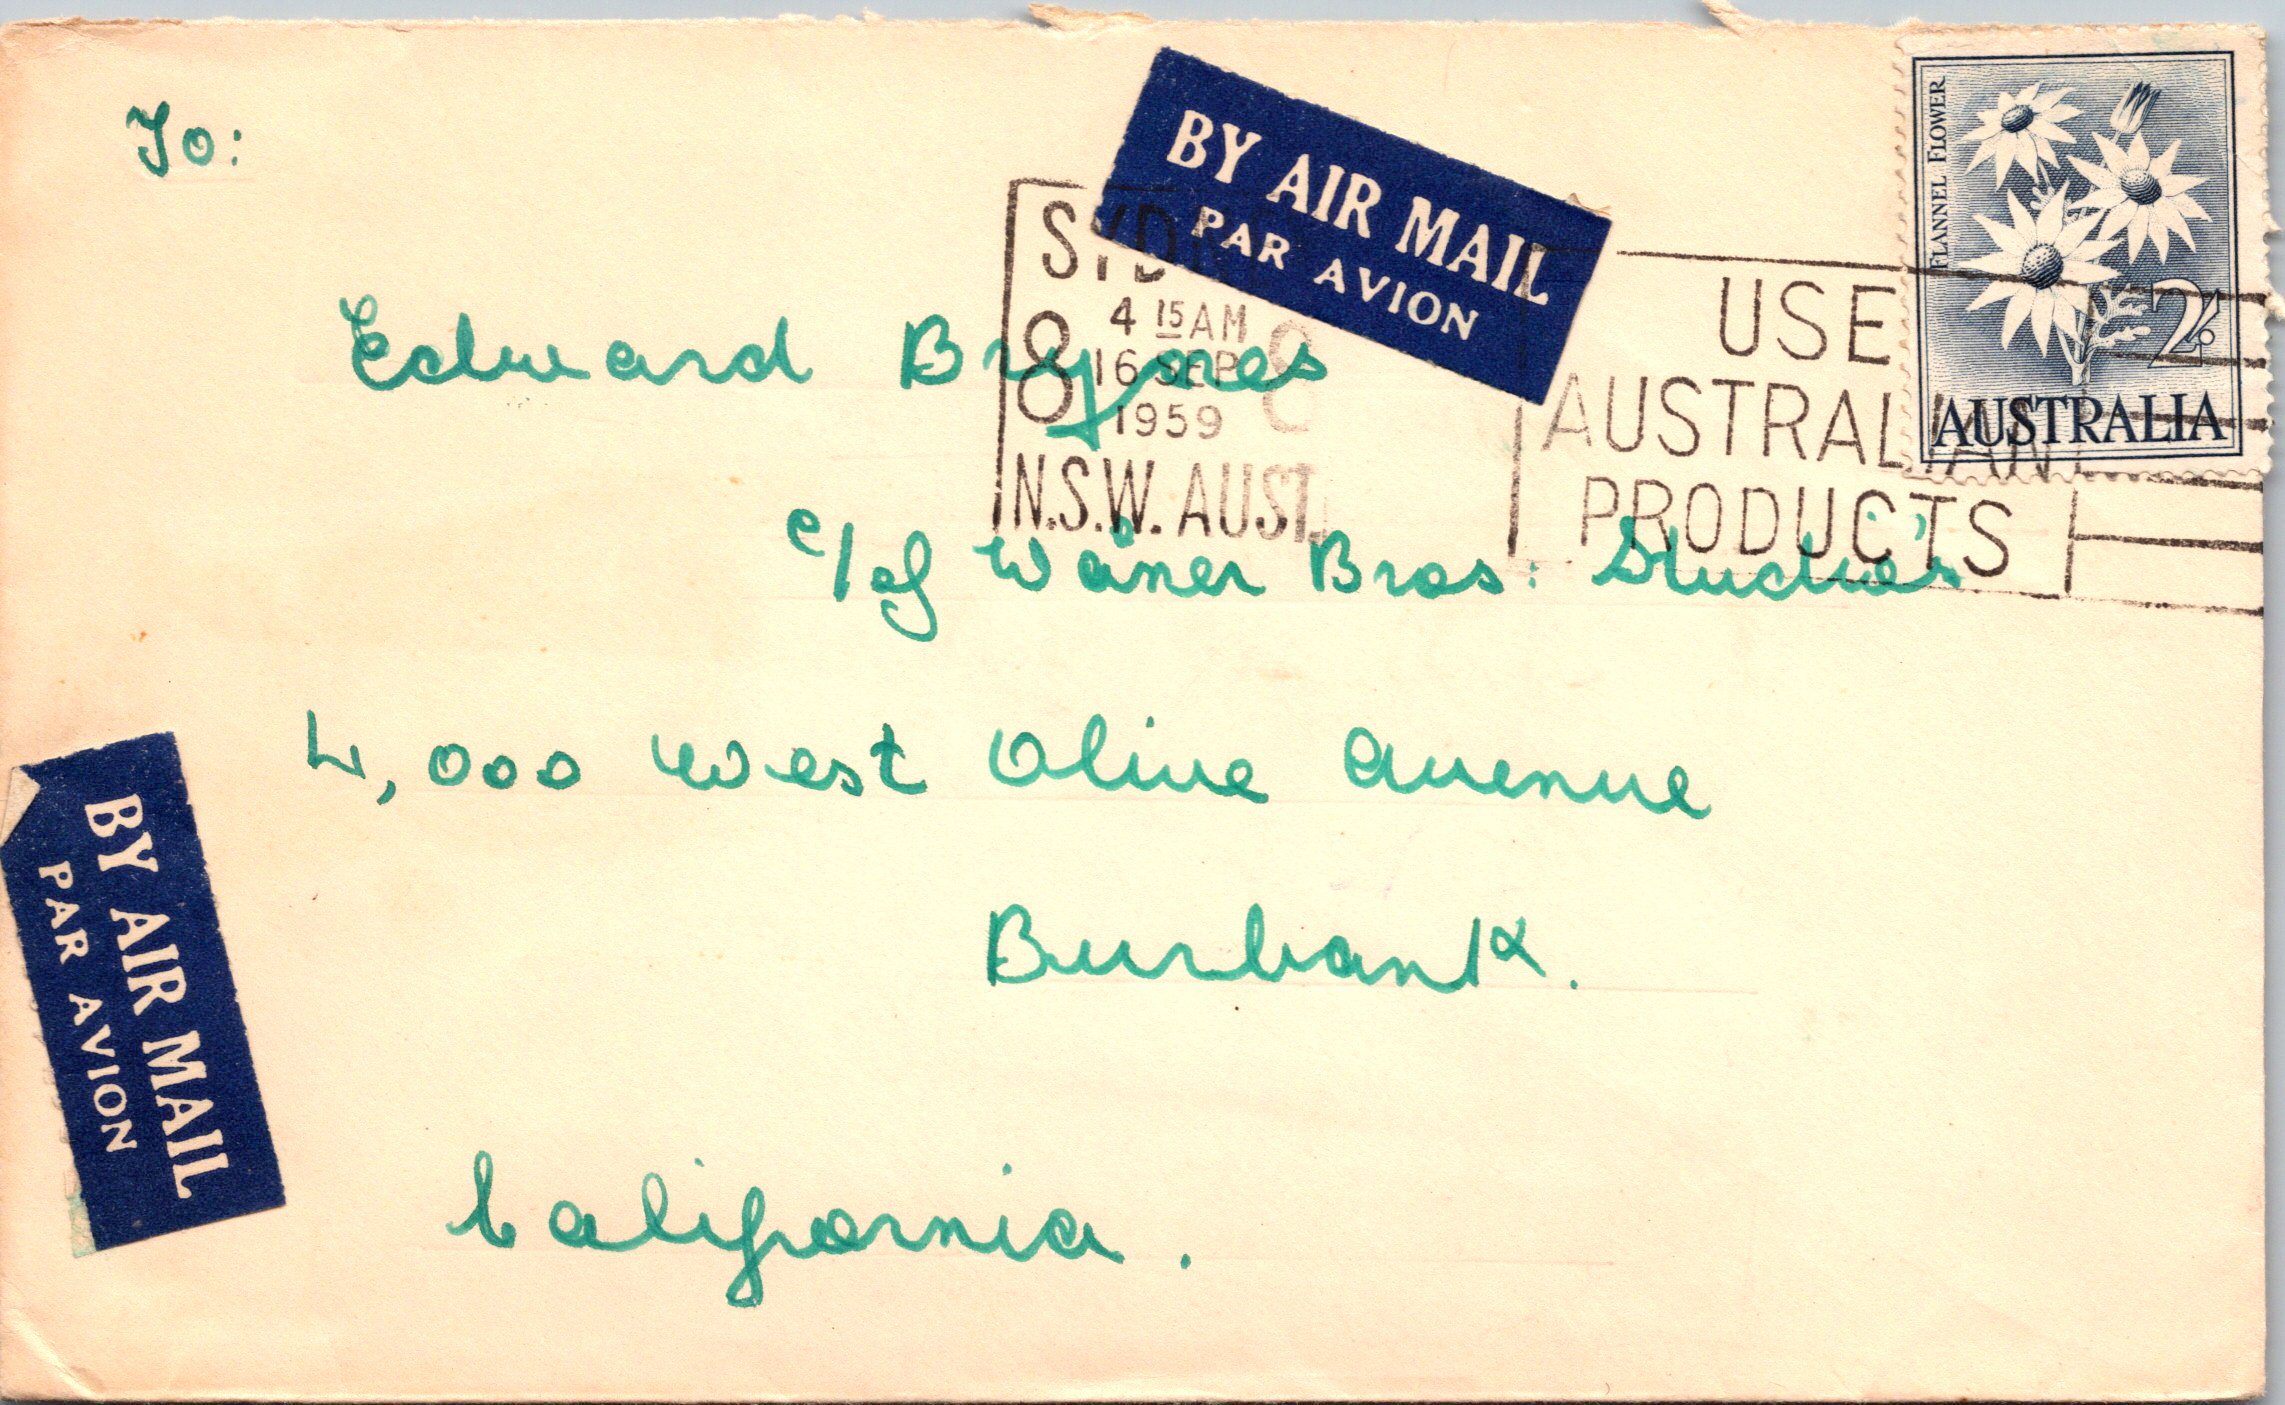 To:
BY AIR MAIL
PAR AVION
SYDN
4 15 AM
8 16 SEP 8
1959
N.S.W. AUST.
USE
AUSTRALIAN
PRODUCTS
FLANNEL FLOWER
2/-
AUSTRALIA
Edward Brynes
c/of Waner Bros: Studio's
4,000 West Olive Avenue
Burbank.
California.
BY AIR MAIL
PAR AVION